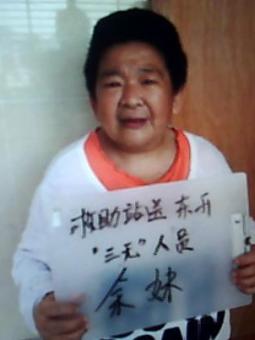 救助站送东升
"三无"人员
余妹
AIN